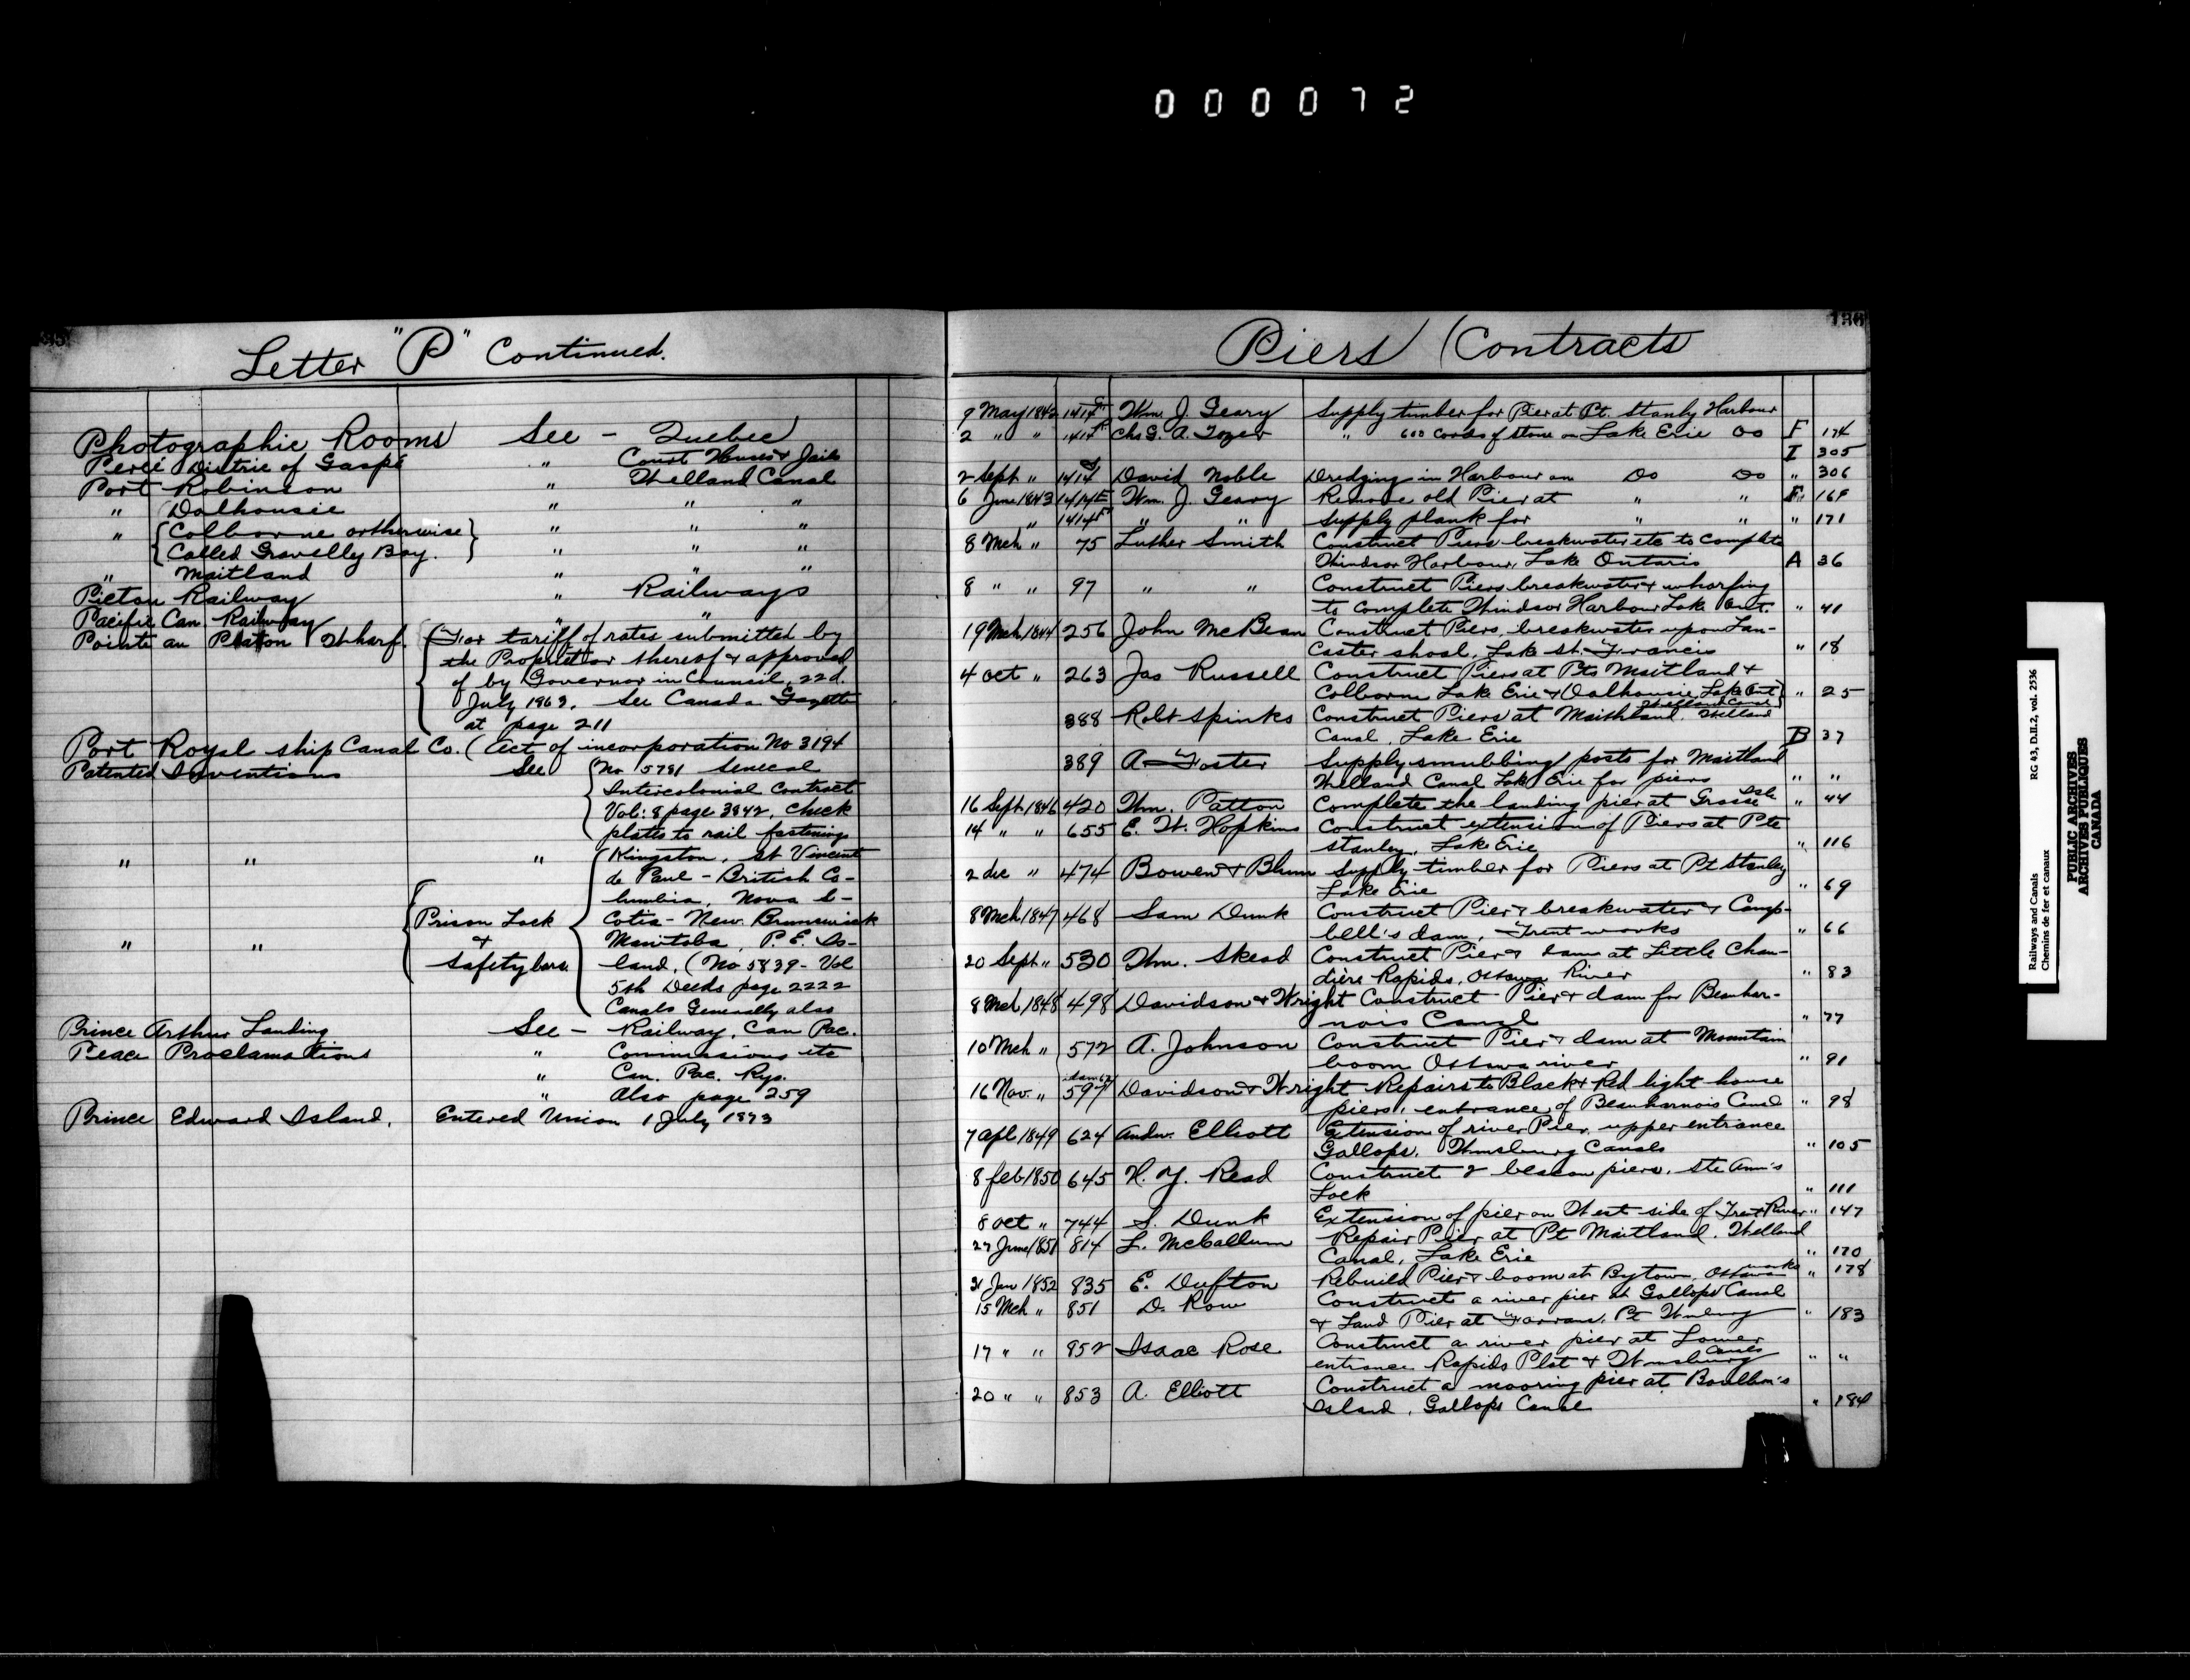 000072
Letter "P" Continued.
Photographic Rooms See - Quebec
Percé District of Gaspé " Court Houses & Jails
Port Robinson " Welland Canal
" Dalhousie " " "
" { Colborne or otherwise } " " "
{ Called Gravelly Bay. } " " "
" Maitland " " "
Pictou Railway " Railways
Pacific Can. Railway " "
Pointe au Platon Wharf. { For tariff of rates submitted by
the Proprietor thereof & approved
of by Governor in Council, 22d.
July 1869. See Canada Gazette
at page 211
Port Royal ship Canal Co. ( Act of incorporation No 3194
Patented Inventions See { No 5781 Senecal
Intercolonial Contract
Vol: 8 page 3842, Check
plates to rail fastenings
" " " { Kingston, St Vincent
de Paul - British Co-
lumbia, Nova S-
{ Prison Lock cotia - New Brunswick
" " & Manitoba, P.E. Is-
Safety bars. land. (No 5839 - Vol
5th Deeds page 2222
Canals Generally also
Prince Arthur Landing See - Railway, Can Pac.
Peace Proclamations " Commissions etc
" Can. Pac. Rys.
" Also page 259
Prince Edward Island. Entered Union 1 July 1873
136
Piers (Contracts
9 May 1842 1414 Wm. J. Geary Supply timber for Pier at Pt. Stanly Harbour
2 " " 1414 Chs G. A. Tozer " 600 cords of stone on Lake Erie Do F 174
I 305
2 Sept " 1414 David Noble Dredging in Harbour on Do Do " 306
6 June 1843 1414E Wm. J. Geary Remove old Pier at " " F 168
" 1414F " " Supply plank for " " " 171
8 Mch " 75 Luther Smith Construct Piers breakwater etc to complete
Windsor Harbour, Lake Ontario A 36
8 " " 97 " " Construct Piers breakwater & wharfing
to complete Windsor Harbour Lake Ont. " 41
19 Mch 1844 256 John McBean Construct Piers, breakwater upon Lan-
caster shoal, Lake St. Francis " 18
4 Oct " 263 Jas Russell Construct Piers at Pts Maitland &
Colborne Lake Erie & Dalhousie, Lake Ont } " 25
Welland Canal
388 Robt Spinks Construct Piers at Maithland. Welland
Canal, Lake Erie B 37
389 A Foster Supply smubbing posts for Maitland
Welland Canal Lake Erie for piers " "
16 Sept 1846 420 Wm. Patton Complete the landing pier at Grosse Isle " 44
14 " " 655 E. W. Hopkins Construct extension of Piers at Pte
Stanley, Lake Erie " 116
2 dec " 474 Bowen & Blum Supply timber for Piers at Pt Stanley
Lake Erie " 69
8 Mch 1847 468 Sam Dunk Construct Pier & breakwater & Camp-
bell's dam, Trent works " 66
20 Sept " 530 Wm. Skead Construct Pier & dam at Little Chau-
diere Rapids, Ottawa River " 83
8 Mch 1848 498 Davidson & Wright Construct Pier & dam for Beauhar-
nois Canal " 77
10 Mch " 572 A. Johnson Construct Pier & dam at Mountain
boom Ottawa river " 91
16 Nov. " 597 Davidson & Wright Repairs to Black & Red light house
piers, entrance of Beauharnois Canal " 98
7 Apl 1849 624 Andw. Elliott Extension of river Pier, upper entrance
Gallops, Wmsburg Canals " 105
8 feb 1850 645 H. Y. Read Construct 2 beacon piers, Ste Ann's
Lock " 111
8 Oct " 744 S. Dunk Extension of pier on West side of Trent River " 147
27 June 1851 814 L. McCallum Repair Pier at Pt Maitland. Welland
Canal, Lake Erie " 170
31 Jan 1852 835 E. Dufton Rebuild Pier & boom at Bytown, Ottawa works " 178
15 Mch " 851 D. Row Construct a river pier at Gallops Canal
& Land Pier at Farrans. Pt Wmsburg " 183
17 " " 852 Isaac Rose Construct a river pier at Lower
entrance Rapids Plat & Wmsburg Canals " "
20 " " 853 A. Elliott Construct a mooring pier at
Island, Gallops Canal " 184
Railways and Canals RG 43, D.II.2, vol. 2536
Chemins de fer et canaux
PUBLIC ARCHIVES
ARCHIVES PUBLIQUES
CANADA